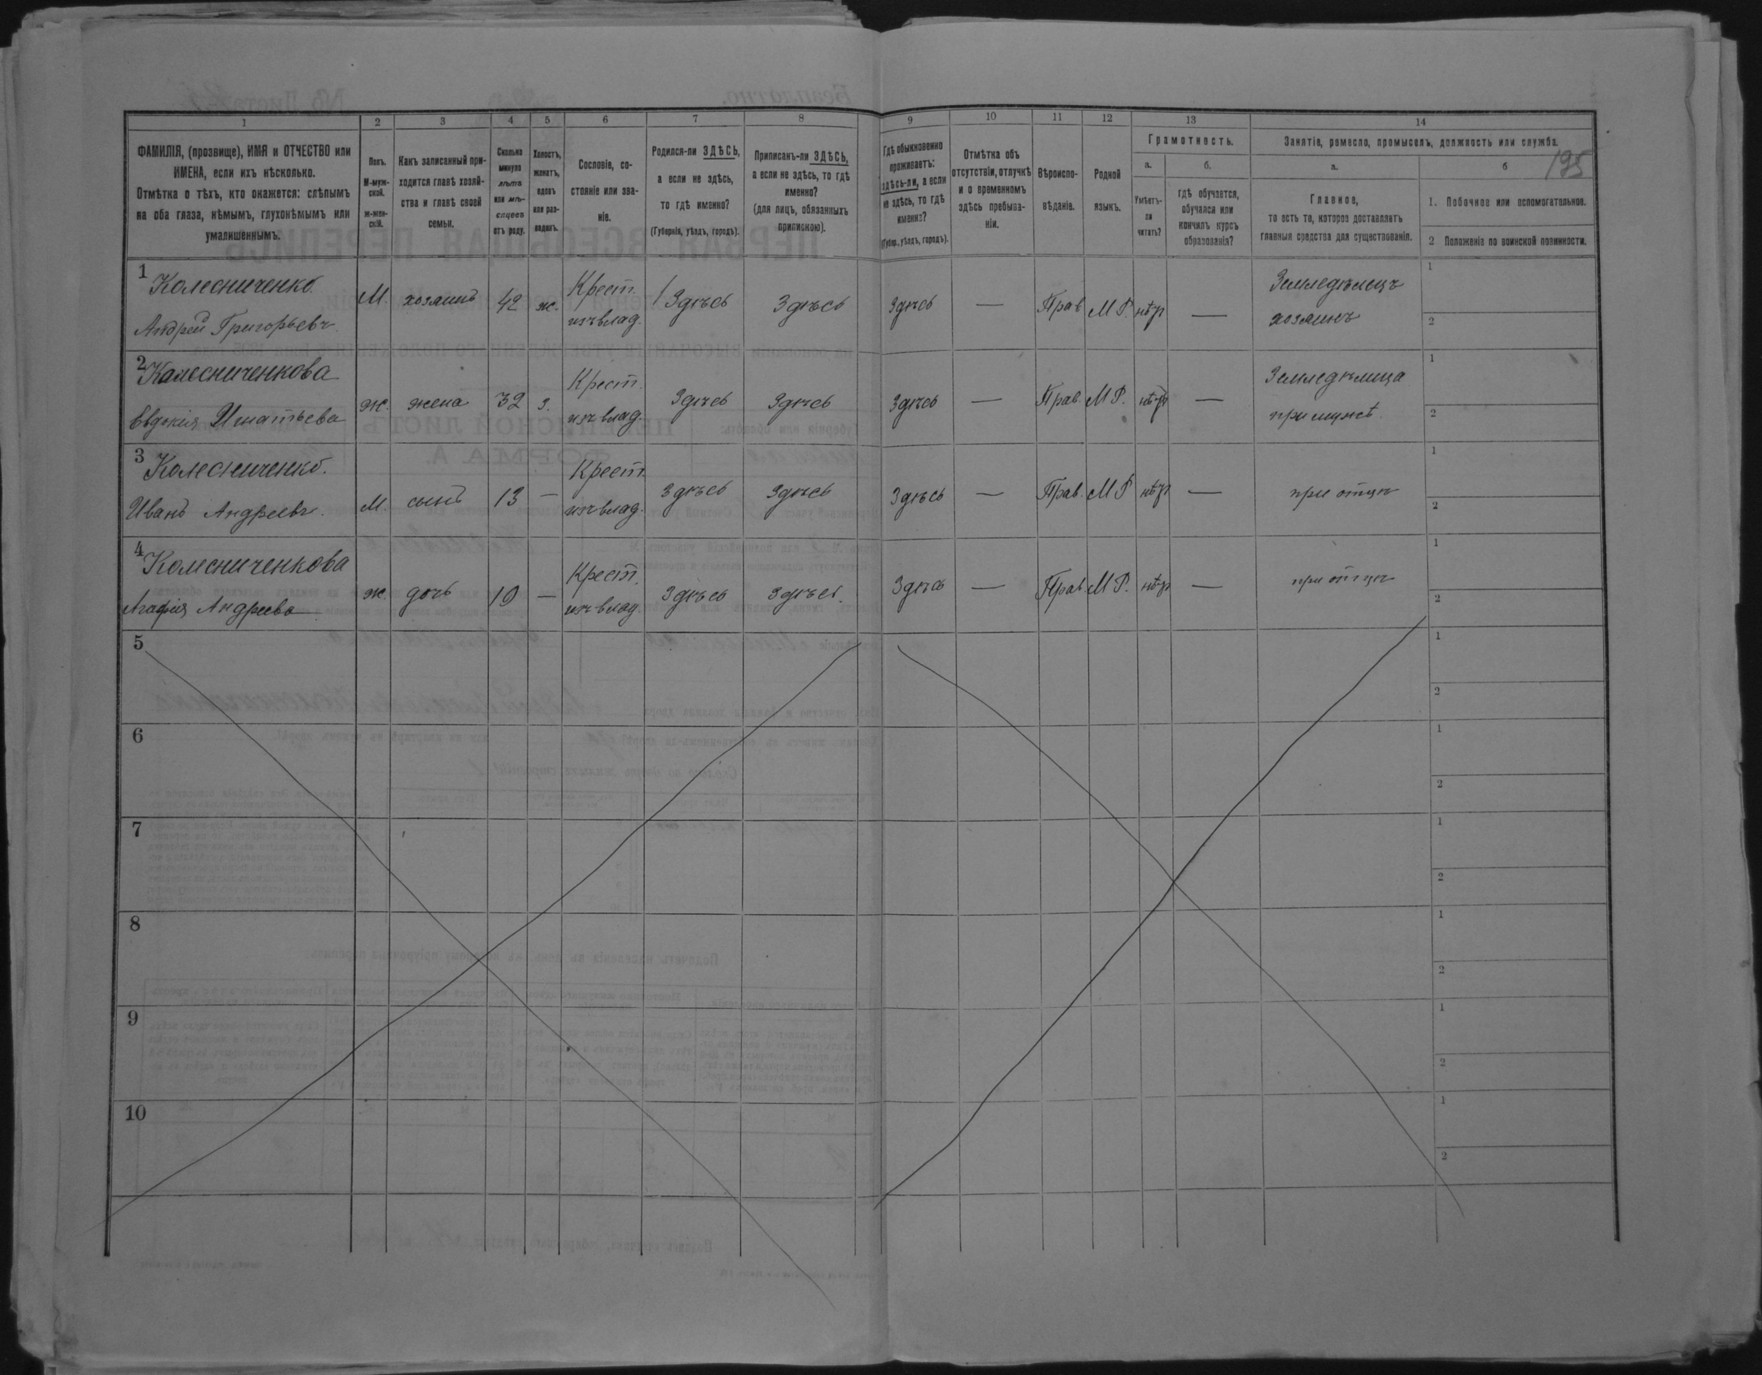 1 2 3 4 5 6 7 8 9 10 11 12 13 14
195
ФАМИЛІЯ, (прозвище), ИМЯ и ОТЧЕСТВО или
ИМЕНА, если ихъ нѣсколько.
Отмѣтка о тѣхъ, кто окажется: слѣпымъ
на оба глаза, нѣмымъ, глухонѣмымъ или
умалишеннымъ.
Полъ.
М-муж-
ской.
ж-жен-
скій.
Какъ записанный при-
ходится главѣ хозяй-
ства и главѣ своей
семьи.
Сколько
минуло
лѣтъ
или мѣ-
сяцевъ
отъ роду.
Холостъ,
женатъ,
вдовъ
или раз-
веденъ.
Сословіе, со-
стояніе или зва-
ніе.
Родился-ли ЗДѢСЬ,
а если не здѣсь,
то гдѣ именно?
(Губернія, уѣздъ, городъ).
Приписанъ-ли ЗДѢСЬ,
а если не здѣсь, то гдѣ
именно?
(для лицъ, обязанныхъ
припискою).
Гдѣ обыкновенно
проживаетъ:
здѣсь-ли, а если
не здѣсь, то гдѣ
именно?
(Губер., уѣздъ, городъ).
Отмѣтка объ
отсутствіи, отлучкѣ
и о временномъ
здѣсь пребыва-
ніи.
Вѣроиспо-
вѣданіе.
Родной
языкъ.
Грамотность.
а. б.
Умѣетъ-
ли
читать?
гдѣ обучается,
обучался или
кончилъ курсъ
образованія?
Занятіе, ремесло, промыселъ, должность или служба.
а. б
Главное,
то есть то, которое доставляетъ
главныя средства для существованія.
1. Побочное или вспомогательное.
2 Положеніе по воинской повинности.
1 Колесниченко Крест. Земледѣлецъ 1
Андрей Григорьевъ М. хозяинъ 42 ж. изъ влад. Здѣсь Здѣсь Здѣсь — Прав М.Р. нѣтъ — хозяинъ 2
2 Колесниченкова Крест. Земледѣлица 1
Евдокія Игнатьева Ж. жена 32 з. изъ влад. Здѣсь Здѣсь Здѣсь — Прав. М.Р. нѣтъ — при мужѣ. 2
3 Колесниченко. Крест. 1
Иванъ Андреевъ. М. сынъ 13 — изъ влад. Здѣсь Здѣсь Здѣсь — Прав. М.Р нѣтъ — при отцѣ 2
4 Колесниченкова Крест. 1
Агафія Андреева ж. дочь 10 — изъ влад. Здѣсь Здѣсь. Здѣсь — Прав М.Р. нѣтъ — при отцѣ 2
5 1
2
6 1
2
7 1
2
8 1
2
9 1
2
10 1
2